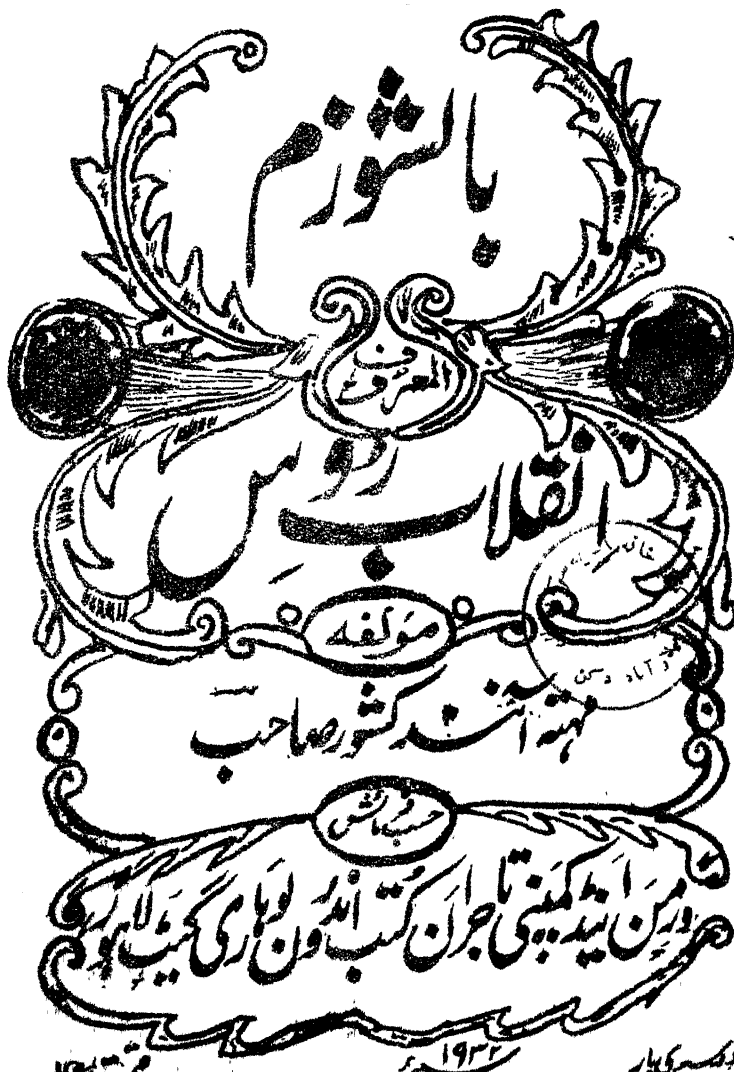 بالشوزم
المعروف
انقلاب روس
مولفہ
مہتہ آنند کشور صاحب
حسب فرمائش
ورمن اینڈ کمپنی تاجران کتب اندرون لوہاری گیٹ لاہور
۱۹۳۲ء